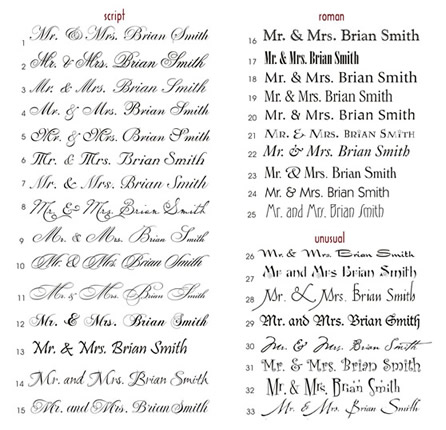 script
1 Mr. & Mrs. Brian Smith
2 Mr. & Mrs. Brian Smith
3 Mr. & Mrs. Brian Smith
4 Mr. & Mrs. Brian Smith
5 Mr. & Mrs. Brian Smith
6 Mr. & Mrs. Brian Smith
7 Mr. & Mrs. Brian Smith
8 Mr. & Mrs. Brian Smith
9 Mr. & Mrs. Brian Smith
10 Mr. & Mrs. Brian Smith
11 Mr. & Mrs. Brian Smith
12 Mr. & Mrs. Brian Smith
13 Mr. & Mrs. Brian Smith
14 Mr. and Mrs. Brian Smith
15 Mr. and Mrs. Brian Smith
roman
16 Mr. & Mrs. Brian Smith
17 Mr. & Mrs. Brian Smith
18 Mr. & Mrs. Brian Smith
19 Mr. & Mrs. Brian Smith
20 Mr. & Mrs. Brian Smith
21 Mr. & Mrs. Brian Smith
22 Mr. & Mrs. Brian Smith
23 Mr. & Mrs. Brian Smith
24 Mr. & Mrs. Brian Smith
25 Mr. and Mrs. Brian Smith
unusual
26 Mr. & Mrs. Brian Smith
27 Mr and Mrs Brian Smith
28 Mr. & Mrs. Brian Smith
29 Mr. and Mrs. Brian Smith
30 Mr. & Mrs. Brian Smith
31 Mr. & Mrs. Brian Smith
32 Mr. & Mrs. Brian Smith
33 Mr. & Mrs. Brian Smith